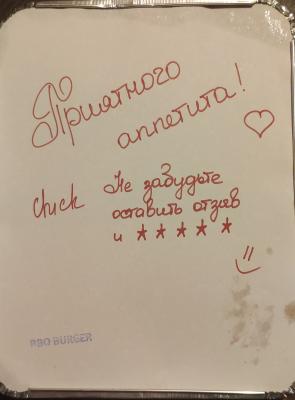 Приятного
аппетита!
chick Не забудьте
оставить отзыв
и ★★★★★
=)
BBQ BURGER